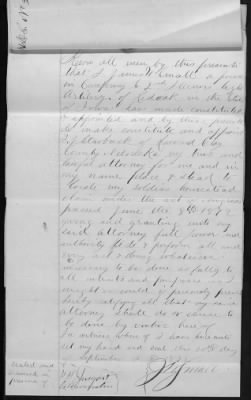 Know all men by these presents
that I James W Small a private
in Company G 2nd Illinois Light
Artillery of Redoak in the State
of Iowa have made constituted
& appointed and by these presents
do make constitute and appoint
of Harvard Clay
County Nebraska my true and
lawful attorney for me and in
my name place & stead to
locate my soldiers homestead
claim under the act of Congress
passed June the 8th 1872
and granting unto my
said attorney full power and
authority to do & perform all and
every act & thing whatsoever
necessary to be done as fully to
all intents and purposes as I
might or could if present
hereby ratifying all that my said
attorney shall do or cause to
be done by virtue hereof
In witness whereof I have hereunto
set my hand and seal this
September
Sealed and
presence of